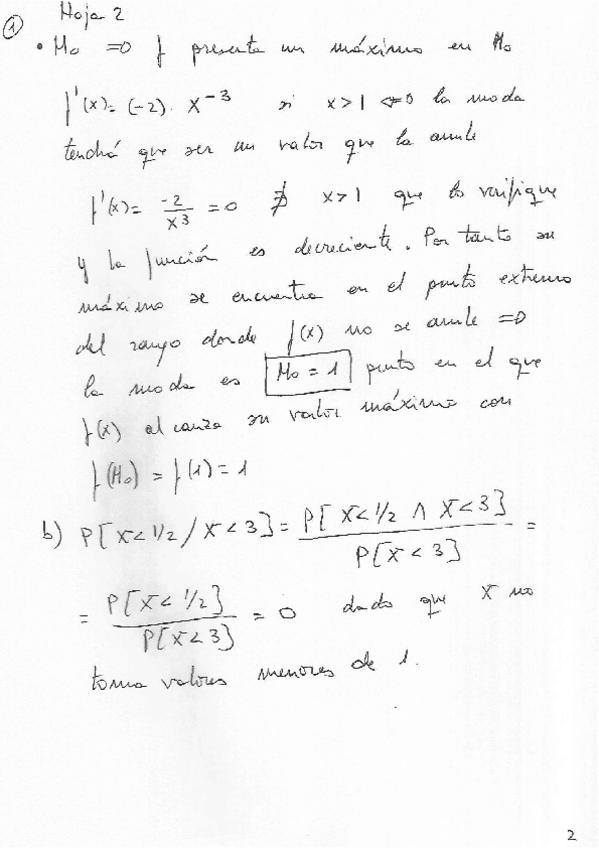 ① Hoja 2
• Mo ⇒ f presenta un máximo en Mo
f'(x) = (-2) · x⁻³ si x > 1 ⇒ la moda
tendrá que ser un valor que la anule
f'(x) = -2/x³ = 0 ∄ x > 1 que lo verifique
y la función es decreciente. Por tanto su
máximo se encuentra en el punto extremo
del rango donde f(x) no se anule ⇒
la moda es Mo = 1 punto en el que
f(x) alcanza su valor máximo con
f(Mo) = f(1) = 1
b) P[X < 1/2 / X < 3] = P[X < 1/2 ∧ X < 3] / P[X < 3] =
= P[X < 1/2] / P[X < 3] = 0 dado que X no
toma valores menores de 1.
2